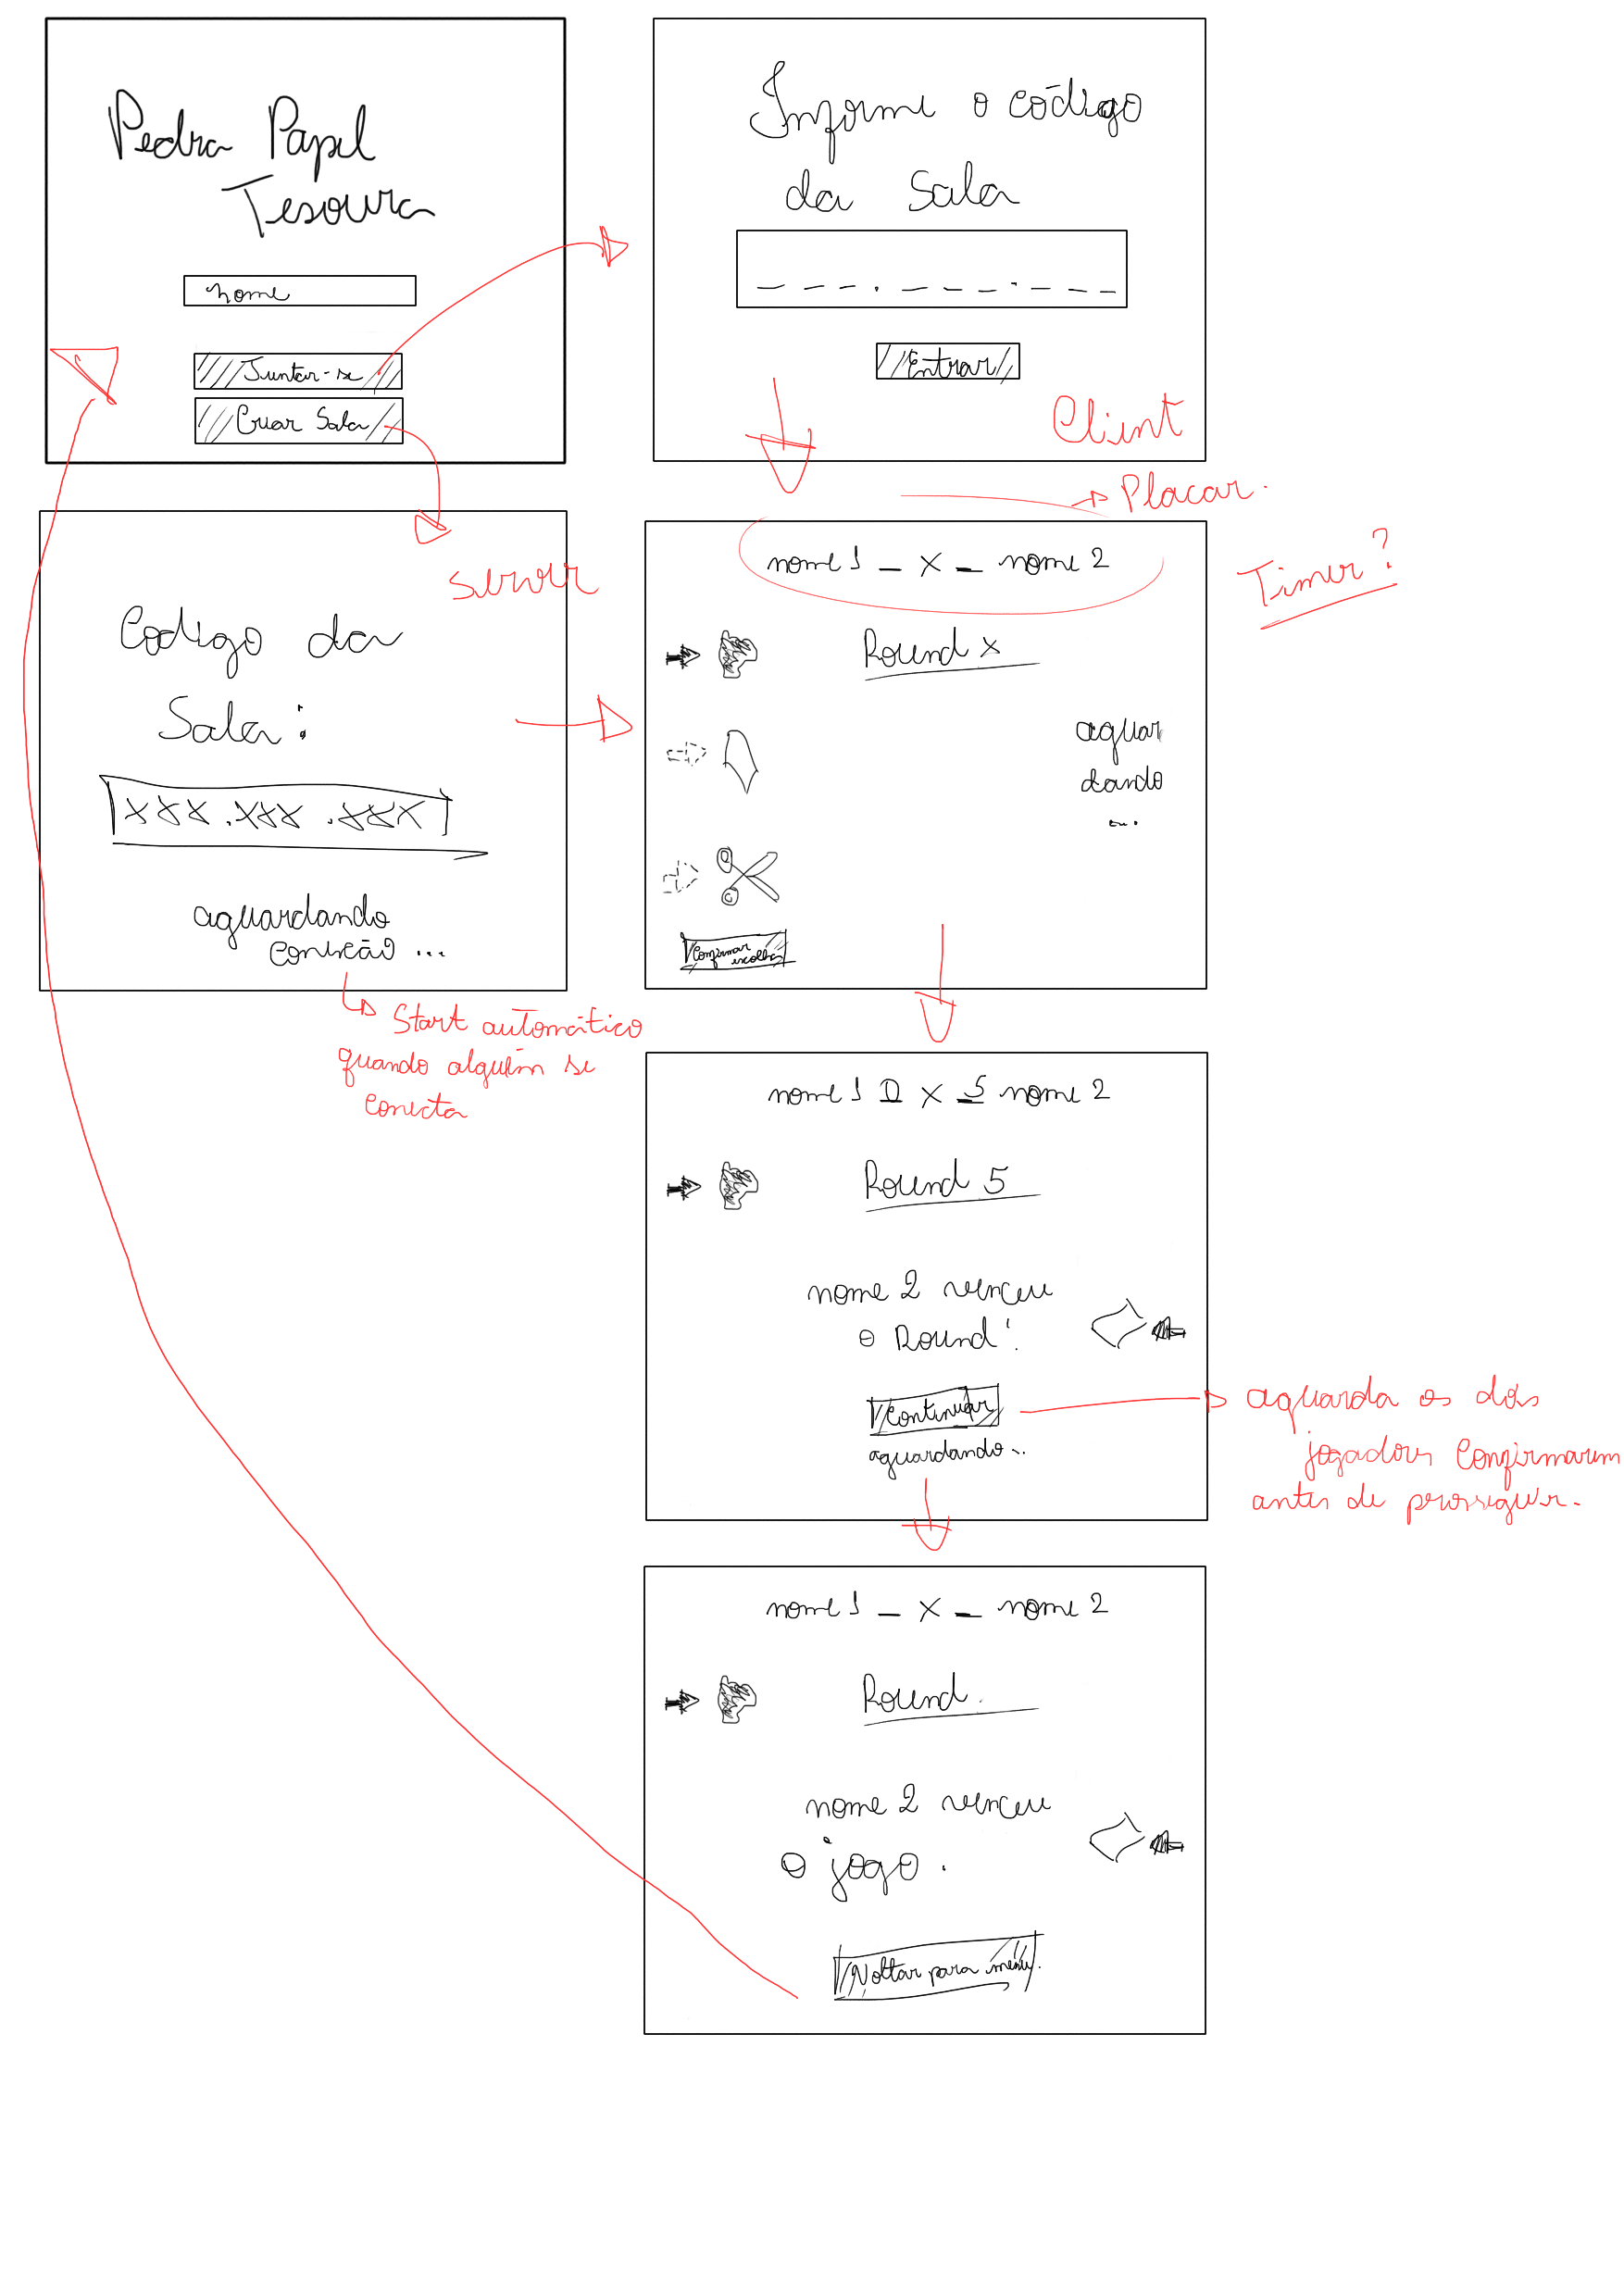 Pedra Papel
Tesoura
nome
Juntar-se
Criar Sala
Informe o código
da Sala
_ _ _ . _ _ _ . _ _ _
Entrar
Client
Server
Codigo da
Sala:
XXX.XXX.XXX
aguardando
conexão ...
Start automático
quando alguém se
conecta
Placar.
Timer?
nome 1 _ X _ nome 2
Round X
aguar
dando
...
Confirmar
escolha
nome 1 0 X 5 nome 2
Round 5
nome 2 venceu
o Round!
Continuar
aguardando...
aguarda os dois
jogadores confirmarem
antes de prosseguir.
nome 1 _ X _ nome 2
Round.
nome 2 venceu
o jogo.
Voltar para menu.